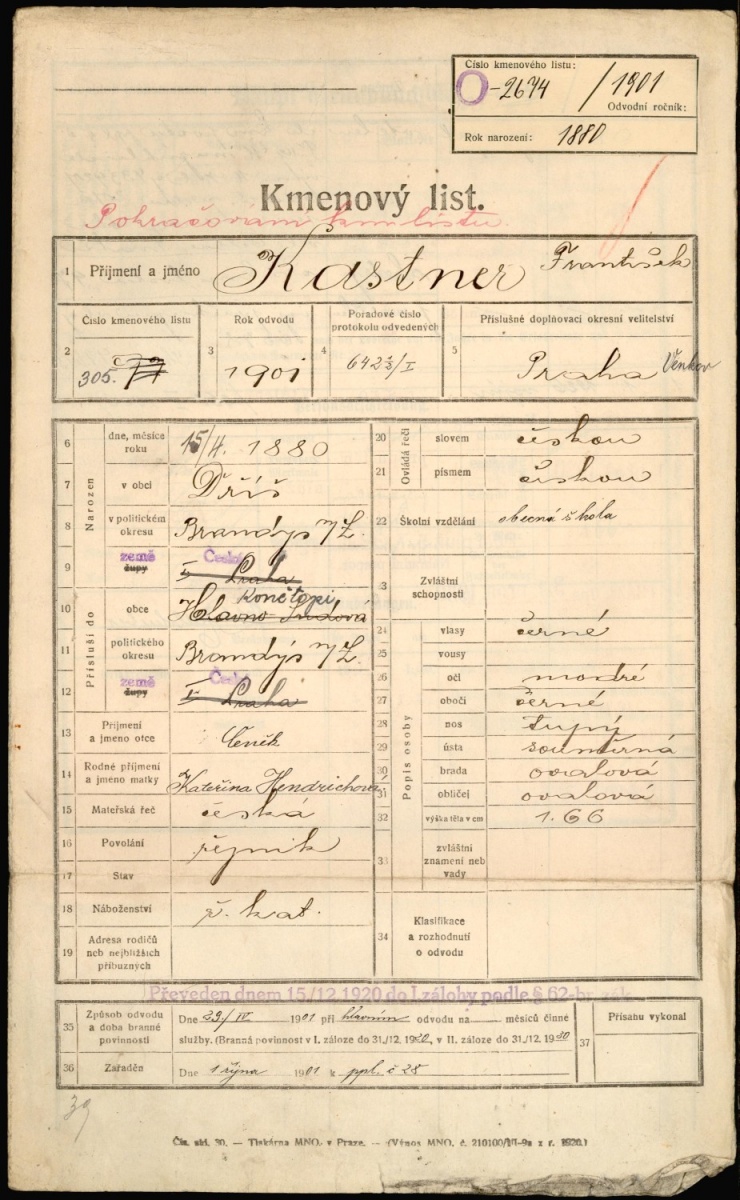 Číslo kmenového listu:
O-2674 / 1901
Odvodní ročník:
Rok narození: 1880
Kmenový list.
Pokračování km. listu.
1 Příjmení a jméno Kastner František
Číslo kmenového listu
Rok odvodu
Pořadové číslo protokolu odvedených
Příslušné doplňovací okresní velitelství
2 305.
3 1901
4 642 /I
5 Praha Venkov
Narozen
6 dne, měsíce roku 15/4. 1880
7 v obci Dříś
8 v politickém okresu Brandýs n/L.
9 země župy Česká I Praha
Přísluší do
10 obce Konětopi Hlavno Sudová
11 politického okresu Brandýs n/L.
12 země župy Česká I Praha
13 Příjmení a jmeno otce Čeněk
14 Rodné příjmení a jméno matky Kateřina Hendrichová
15 Mateřská řeč česká
16 Povolání řezník
17 Stav
18 Náboženství ř. kat.
19 Adresa rodičů neb nejbližších příbuzných
Ovládá řeči
20 slovem českou
21 písmem českou
22 Školní vzdělání obecná škola
3 Zvláštní schopnosti
Popis osoby
24 vlasy černé
25 vousy
26 oči modré
27 obočí černé
28 nos tupý
29 ústa souměrná
30 brada ovalová
31 obličej ovalová
32 výška těla v cm 1.66
33 zvláštní znamení neb vady
34 Klasifikace a rozhodnutí o odvodu
Převeden dnem 15/12 1920 do I zálohy podle § 62-br. zák.
35 Způsob odvodu a doba branné povinnosti
Dne 29/IV 1901 při hlavním odvodu na měsíců činné
služby. (Branná povinnost v I. záloze do 31./12. 1920, v II. záloze do 31./12. 1930
36 Zařaděn Dne 1 října 1901 k ppl. č 28
37 Přísahu vykonal
39
Čís. skl. 30. — Tiskárna MNO. v Praze. — (Věnos MNO. č. 210100/III-9a z r. 1920.)